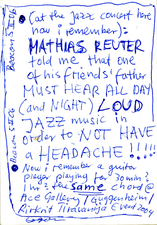 (at the Jazz concert here
now i remember):
MATHIAS REUTER
told me that one
of his friends' father
MUST HEAR ALL DAY
(and NIGHT) LOUD
JAZZ music in
order to NOT HAVE
a HEADACHE !!!!
Now i remember a guitar
player playing for 30 min?
1 hr? the same chord @
Ace Gallery / Guggenheim /
Rirkrit Tiravanija Event 2004